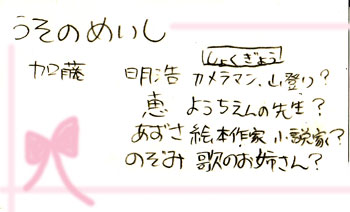 うそのめいし
しょくぎょう
加藤 明浩 カメラマン、山登り?
恵 ようちえんの先生?
あずさ 絵本作家 小説家?
のぞみ 歌のお姉さん?